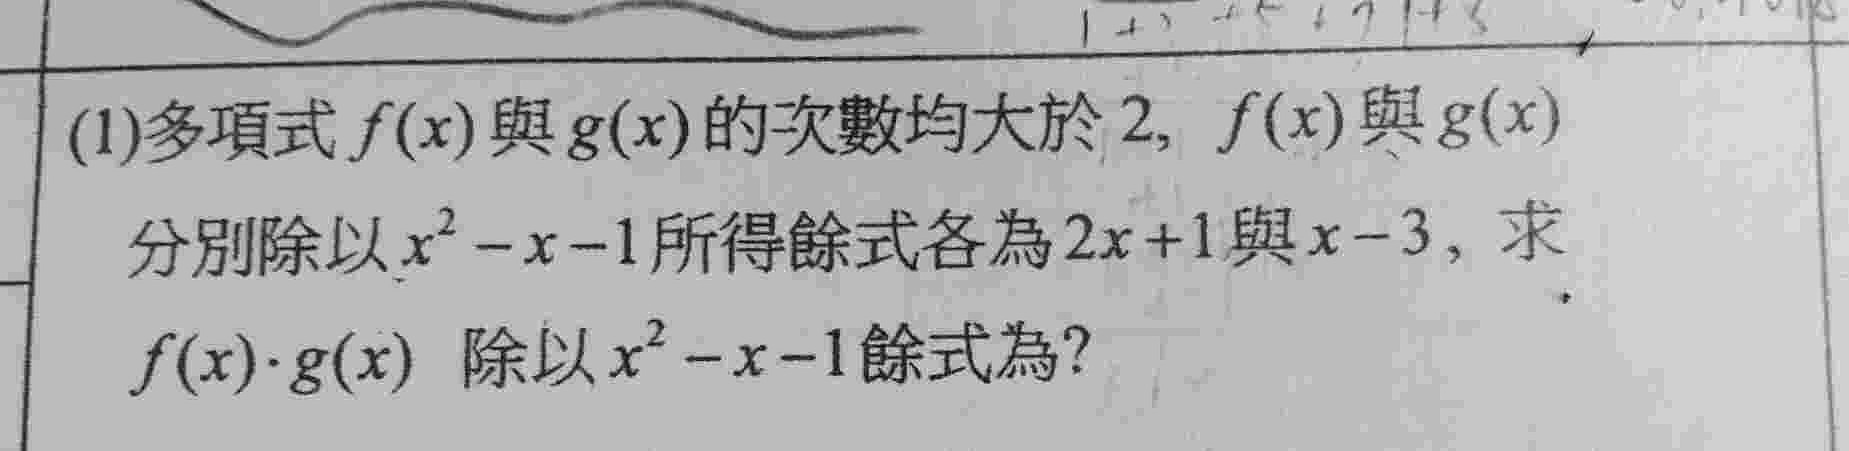 (1)多項式 f(x) 與 g(x) 的次數均大於 2, f(x) 與 g(x)
分別除以 x² − x − 1 所得餘式各為 2x + 1 與 x − 3, 求
f(x)·g(x) 除以 x² − x − 1 餘式為?